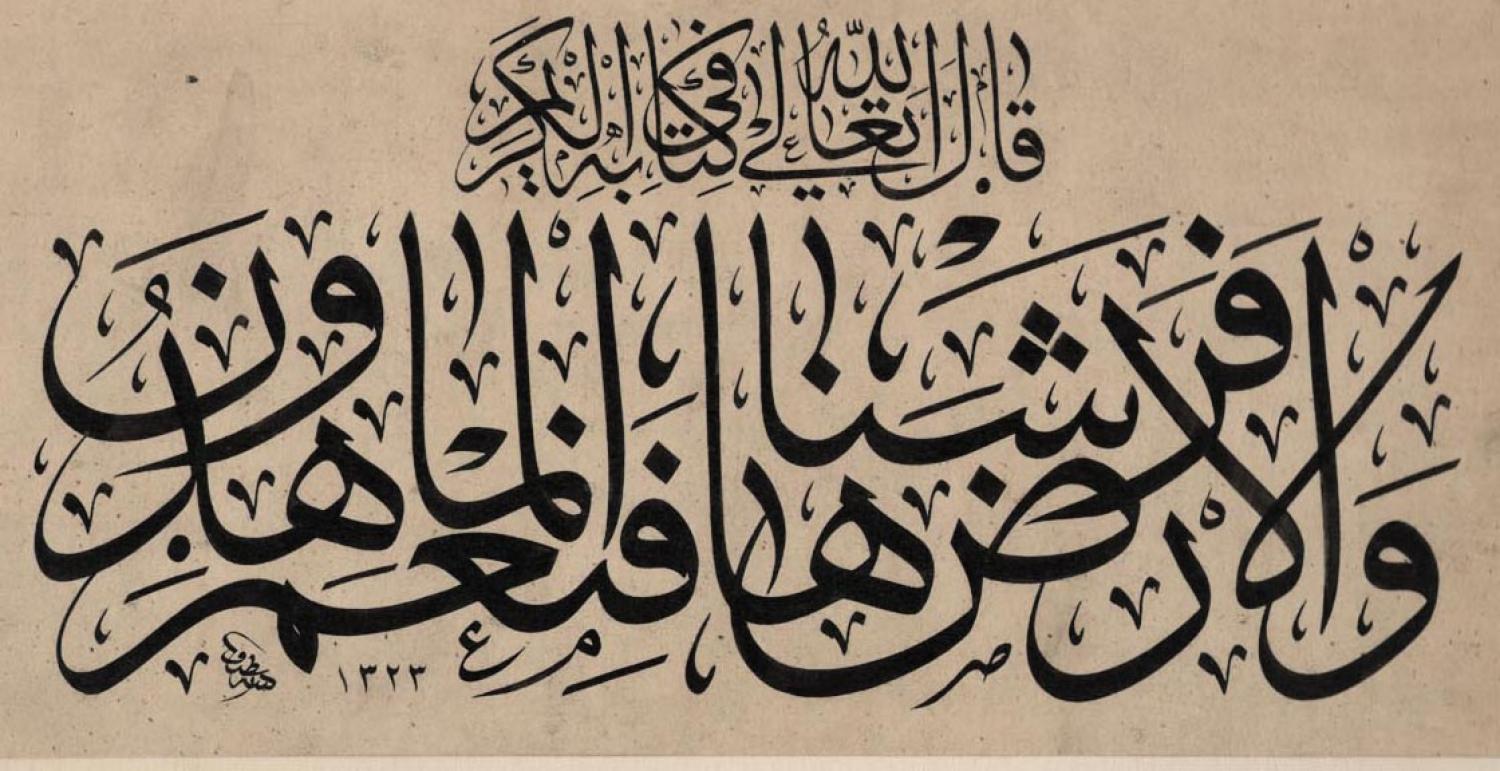 قال الله تعالى في كتابه الكريم
والارض فرشناها فنعم الماهدون
١٣٢٣